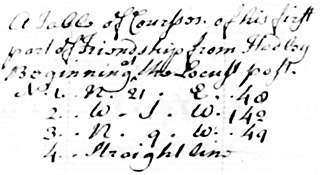 A Table of Courses. of his first
part of Friendship from Hadley
Beginning at the Locust post.
No. 1. N. 21. E. 48
2. W. S. W. 142
3. N. 9. W. 49
4. Straight line